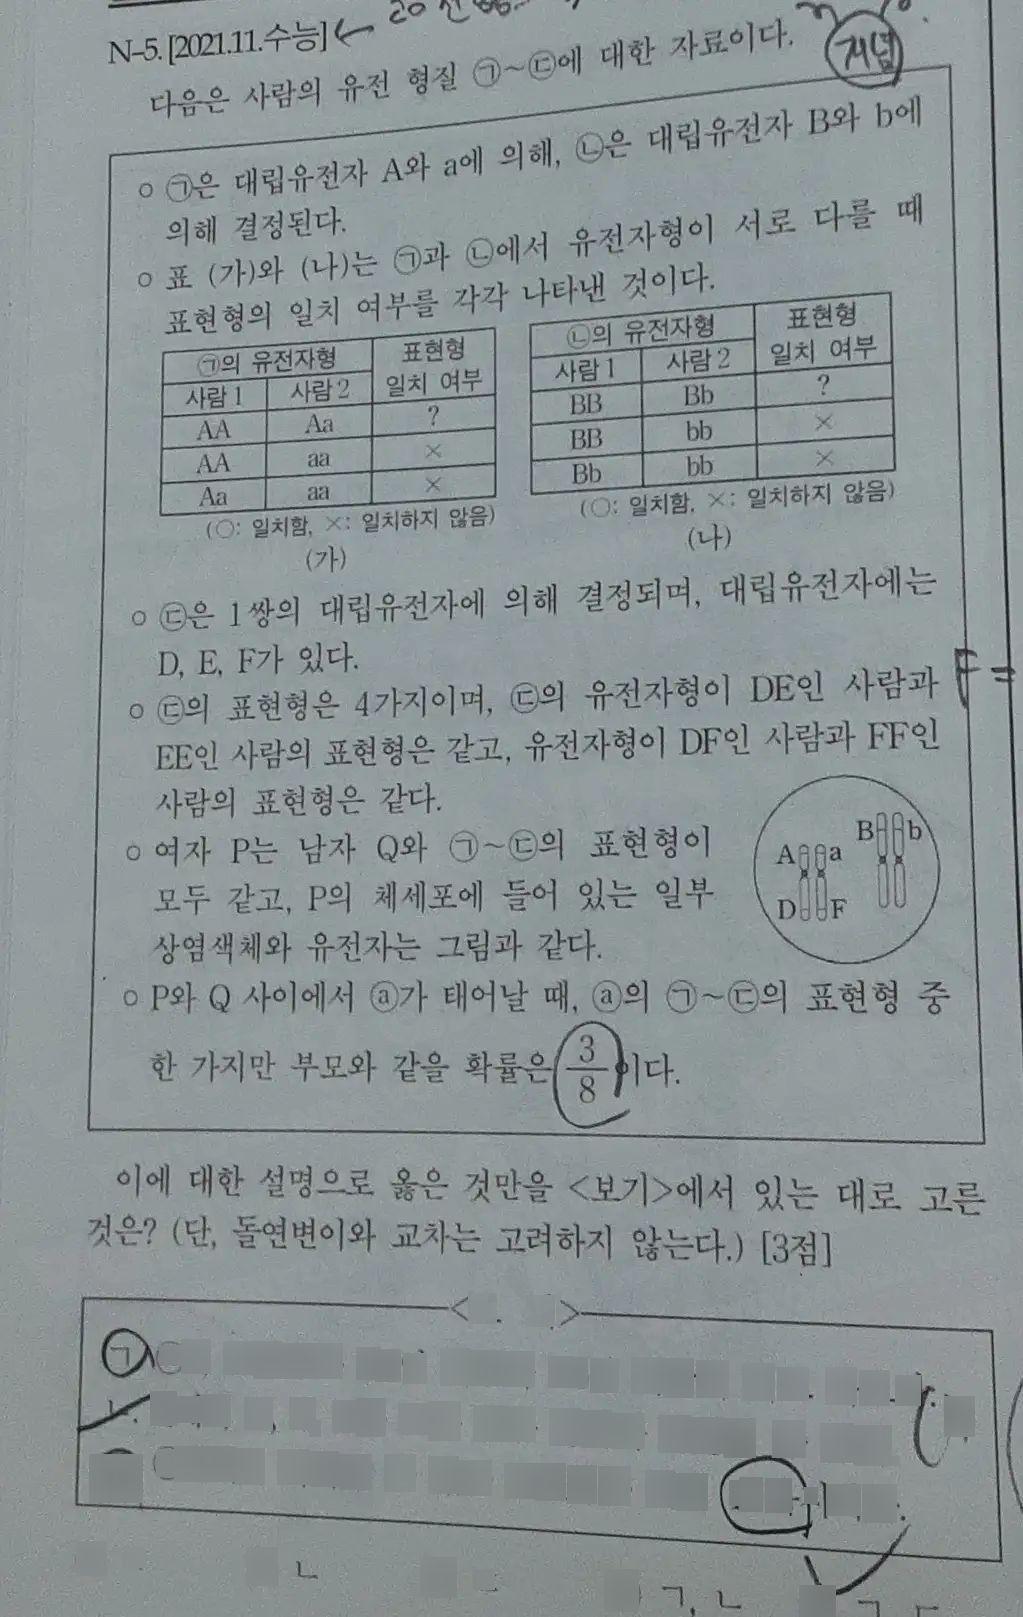 N-5. [2021.11.수능] ← 20
다음은 사람의 유전 형질 ㉠~㉢에 대한 자료이다.
개념
○ ㉠은 대립유전자 A와 a에 의해, ㉡은 대립유전자 B와 b에
의해 결정된다.
○ 표 (가)와 (나)는 ㉠과 ㉡에서 유전자형이 서로 다를 때
표현형의 일치 여부를 각각 나타낸 것이다.
㉠의 유전자형 표현형 일치 여부
사람 1 사람 2
AA Aa ?
AA aa ×
Aa aa ×
(○: 일치함, ×: 일치하지 않음)
(가)
㉡의 유전자형 표현형 일치 여부
사람 1 사람 2
BB Bb ?
BB bb ×
Bb bb ×
(○: 일치함, ×: 일치하지 않음)
(나)
○ ㉢은 1쌍의 대립유전자에 의해 결정되며, 대립유전자에는
D, E, F가 있다.
F =
○ ㉢의 표현형은 4가지이며, ㉢의 유전자형이 DE인 사람과
EE인 사람의 표현형은 같고, 유전자형이 DF인 사람과 FF인
사람의 표현형은 같다.
○ 여자 P는 남자 Q와 ㉠~㉢의 표현형이
모두 같고, P의 체세포에 들어 있는 일부
상염색체와 유전자는 그림과 같다.
A a B b
D F
○ P와 Q 사이에서 ⓐ가 태어날 때, ⓐ의 ㉠~㉢의 표현형 중
한 가지만 부모와 같을 확률은 3/8이다.
이에 대한 설명으로 옳은 것만을 <보기>에서 있는 대로 고른
것은? (단, 돌연변이와 교차는 고려하지 않는다.) [3점]
ㄱ
ㄴ
ㄱ, ㄴ